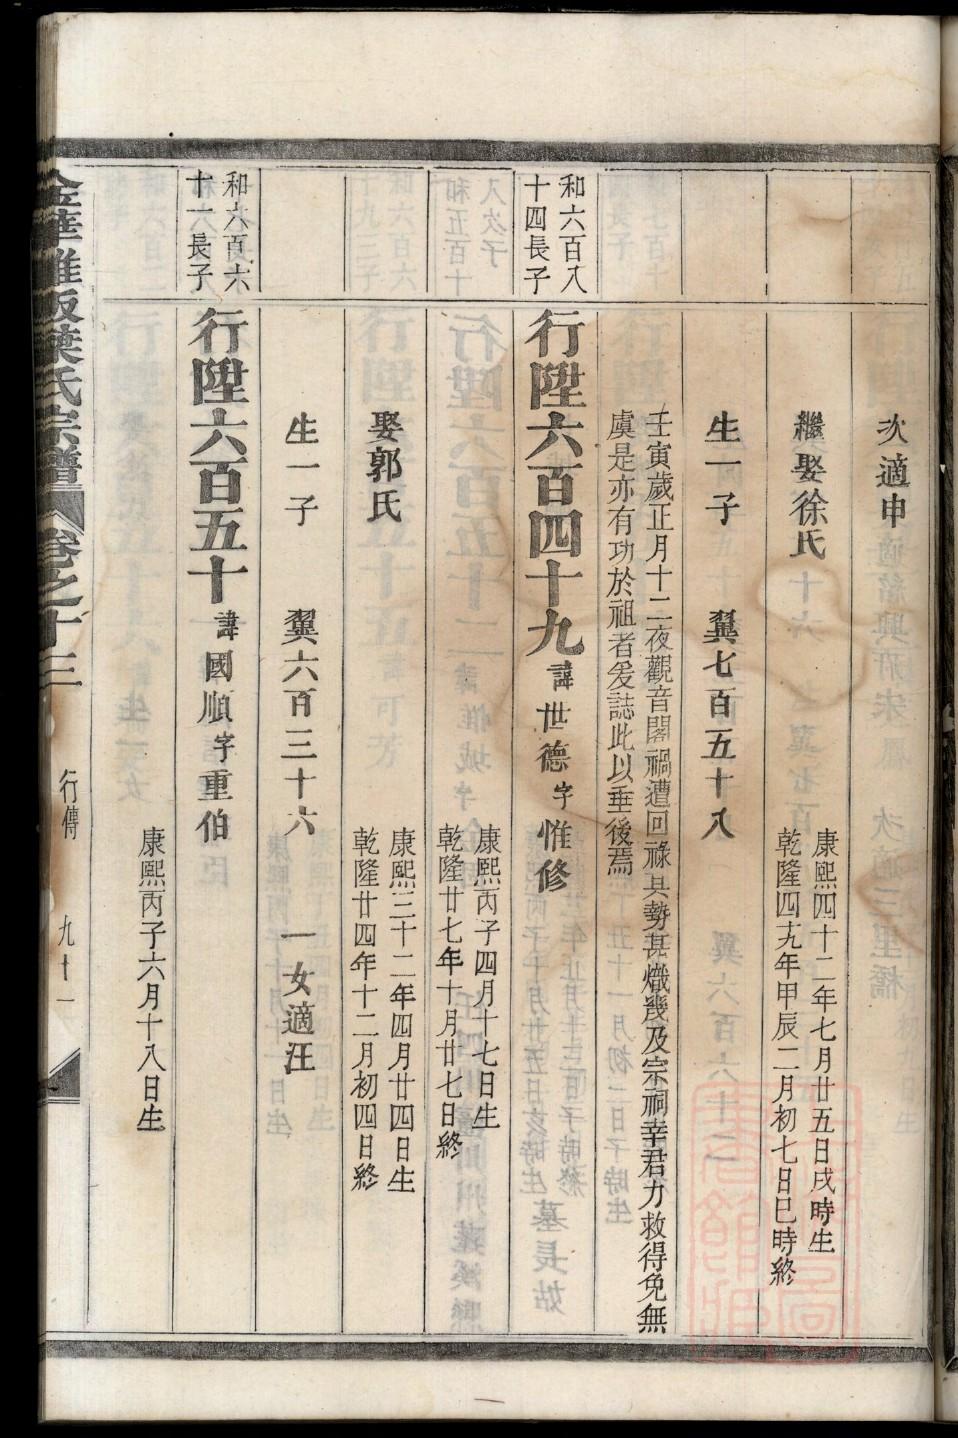 次適申
繼娶徐氏
康熙四十二年七月廿五日戌時生
乾隆四十九年甲辰二月初七日巳時終
生一子　翼七百五十八
壬寅歲正月十二夜觀音閣禍遭回祿其勢甚熾幾及宗祠幸君力救得免無
虞是亦有功於祖者爰誌此以垂後焉
和六百八
十四長子
行陞六百四十九　諱世德字惟修
康熙丙子四月十七日生
乾隆廿七年十月廿七日終
娶郭氏
康熙三十二年四月廿四日生
乾隆廿四年十二月初四日終
生一子　翼六百三十六　一女適汪
和六百六
十一長子
行陞六百五十　諱國順字重伯
康熙丙子六月十八日生
金華雅畈葉氏宗譜　卷之十三　行傳　九十一